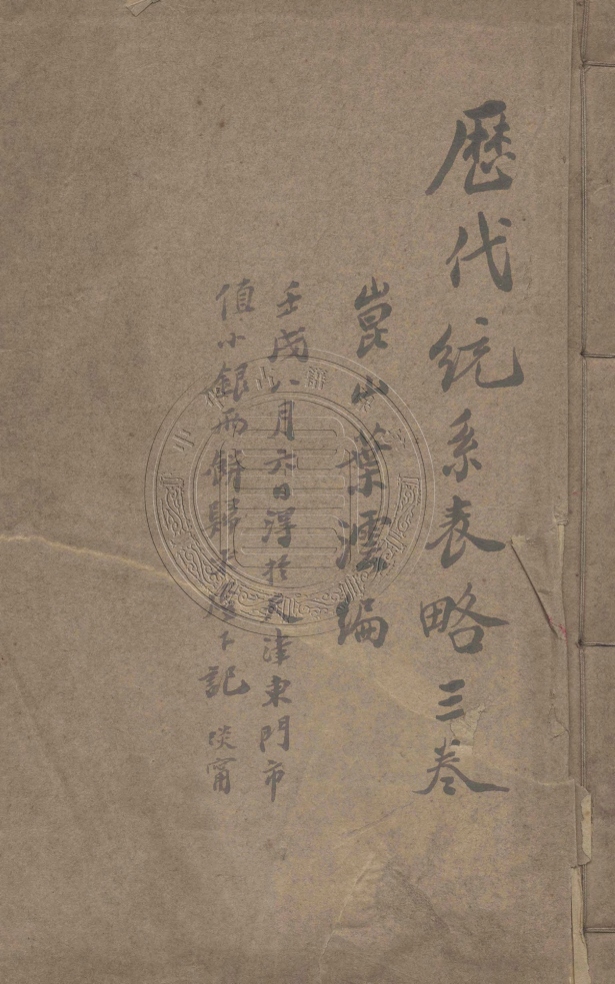 歷代統系表略三卷
崑山葉澐編
壬戌八月六日得於天津東門市
值小銀兩餅歸
下記 淡甯